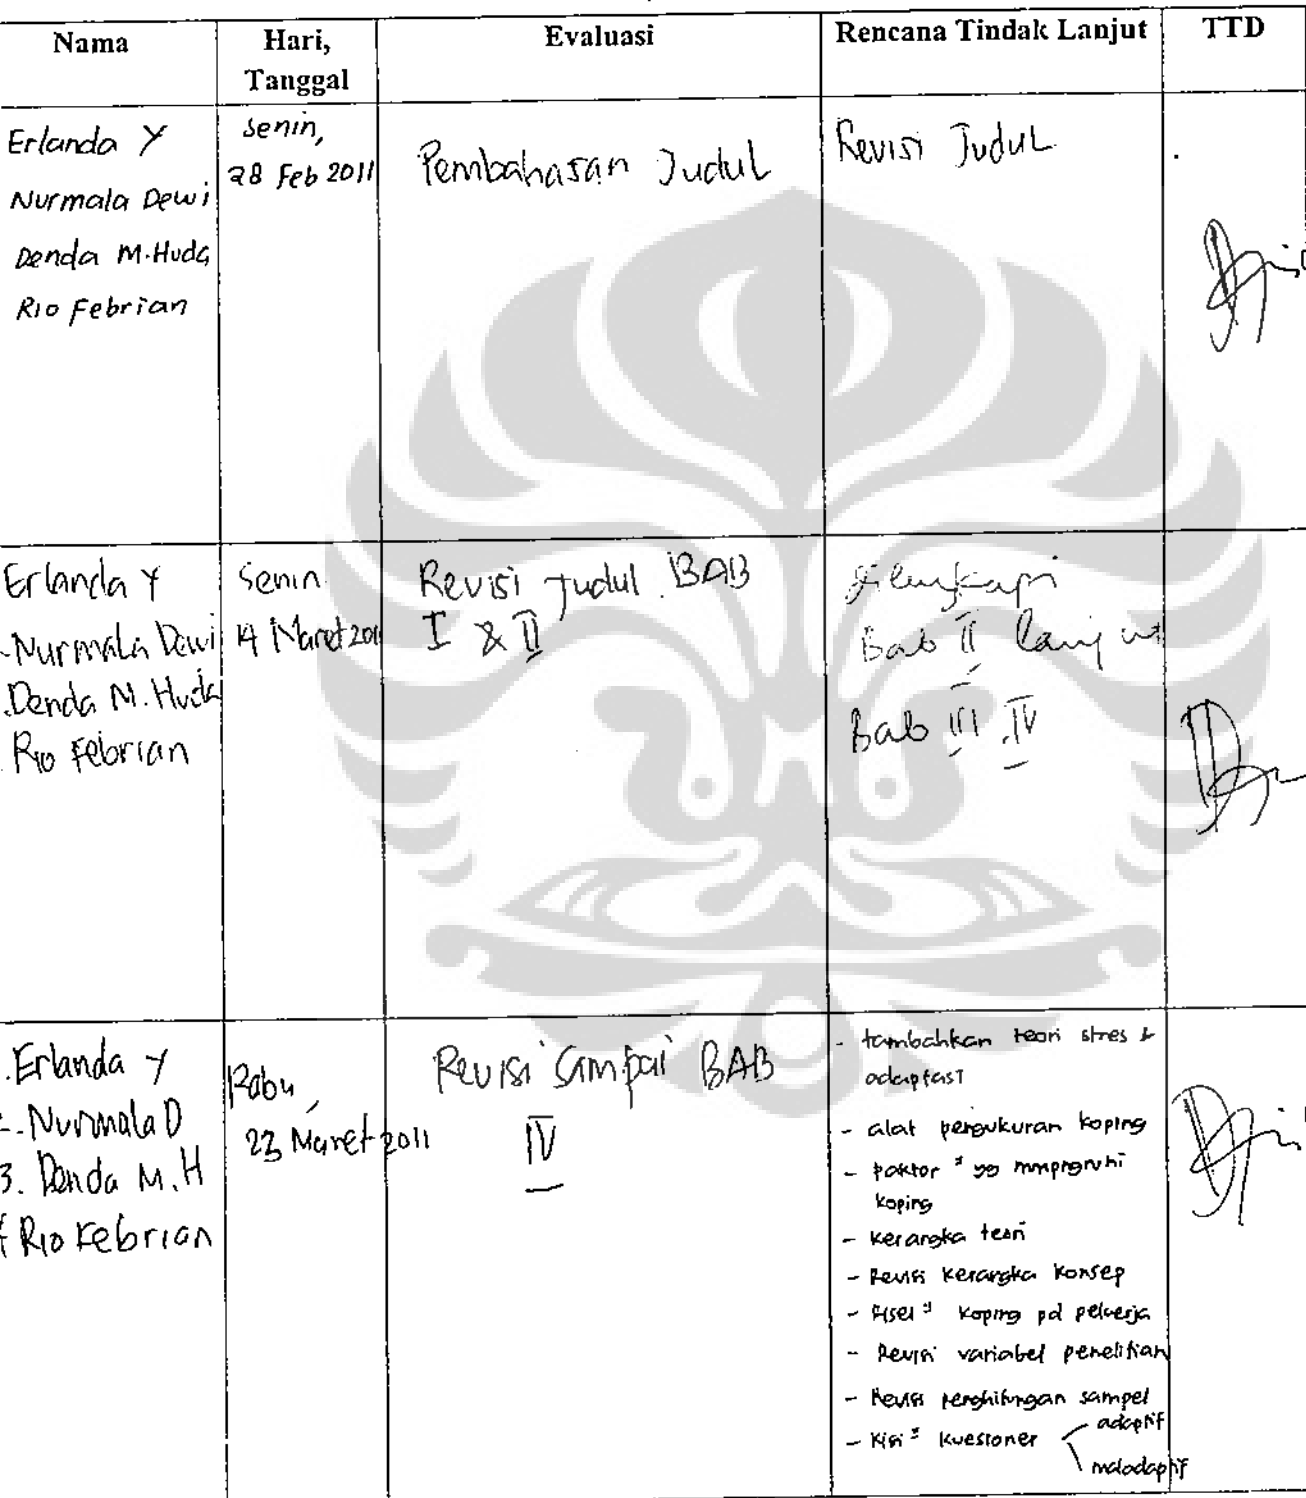 Nama
Hari,
Tanggal
Evaluasi
Rencana Tindak Lanjut
TTD
Erlanda Y
Nurmala Dewi
Denda M.Huda
Rio Febrian
Senin,
28 Feb 2011
Pembahasan Judul
Revisi Judul
Erlanda Y
Nurmala Dewi
Denda M. Huda
Rio Febrian
Senin
14 Maret 2011
Revisi Judul. BAB
I & II
dilengkapi
Bab II lanjut
Bab III, IV
.Erlanda Y
2. Nurmala D
3. Denda M.H
4 Rio Febrian
Rabu,
23 Maret 2011
Revisi sampai BAB
IV
- tambahkan teori stres &
adaptasi
- alat pengukuran koping
- faktor² yg
koping
- kerangka teori
- Revisi kerangka konsep
- koping pd pekerja
- Revisi variabel penelitian
- Revisi penghitungan sampel
- Kisi² kuesioner
adaptif
maladaptif